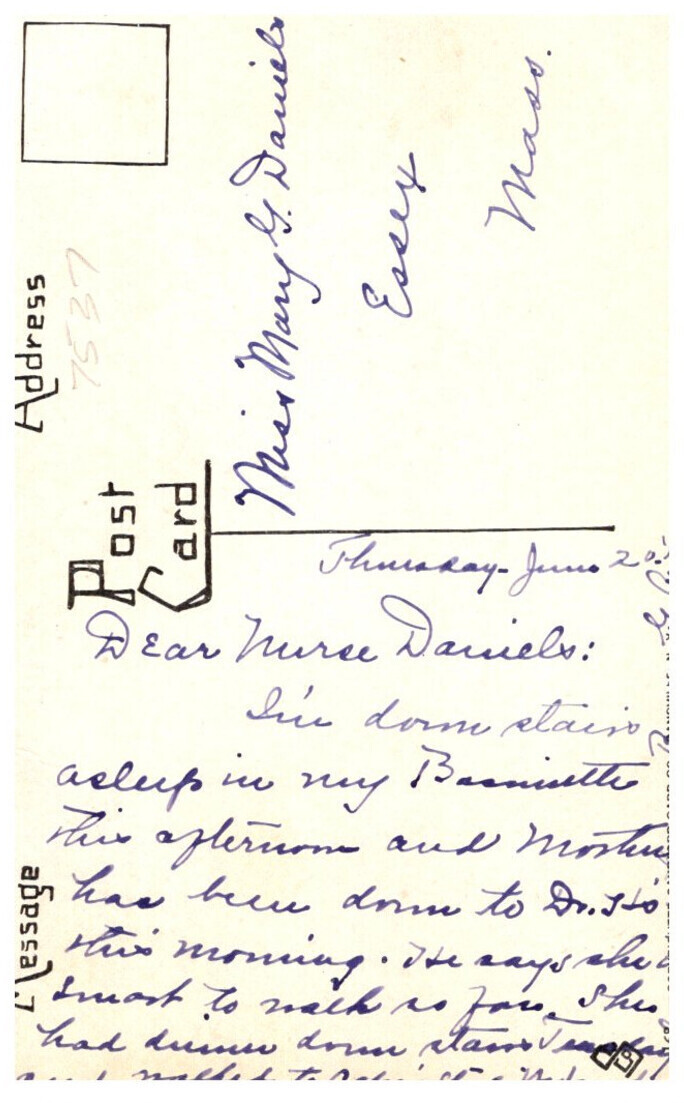 Address
7537
Miss Mary G. Daniels
Essex
Mass.
Post
Card
Message
Thursday - June 20
Dear Nurse Daniels:
I'm down stairs
asleep in my Bassinette
this afternoon and Mother
has been down to Dr. H's
this morning. He says she
smart to walk so far. She
had dinner down stairs Tuesday
and walked to